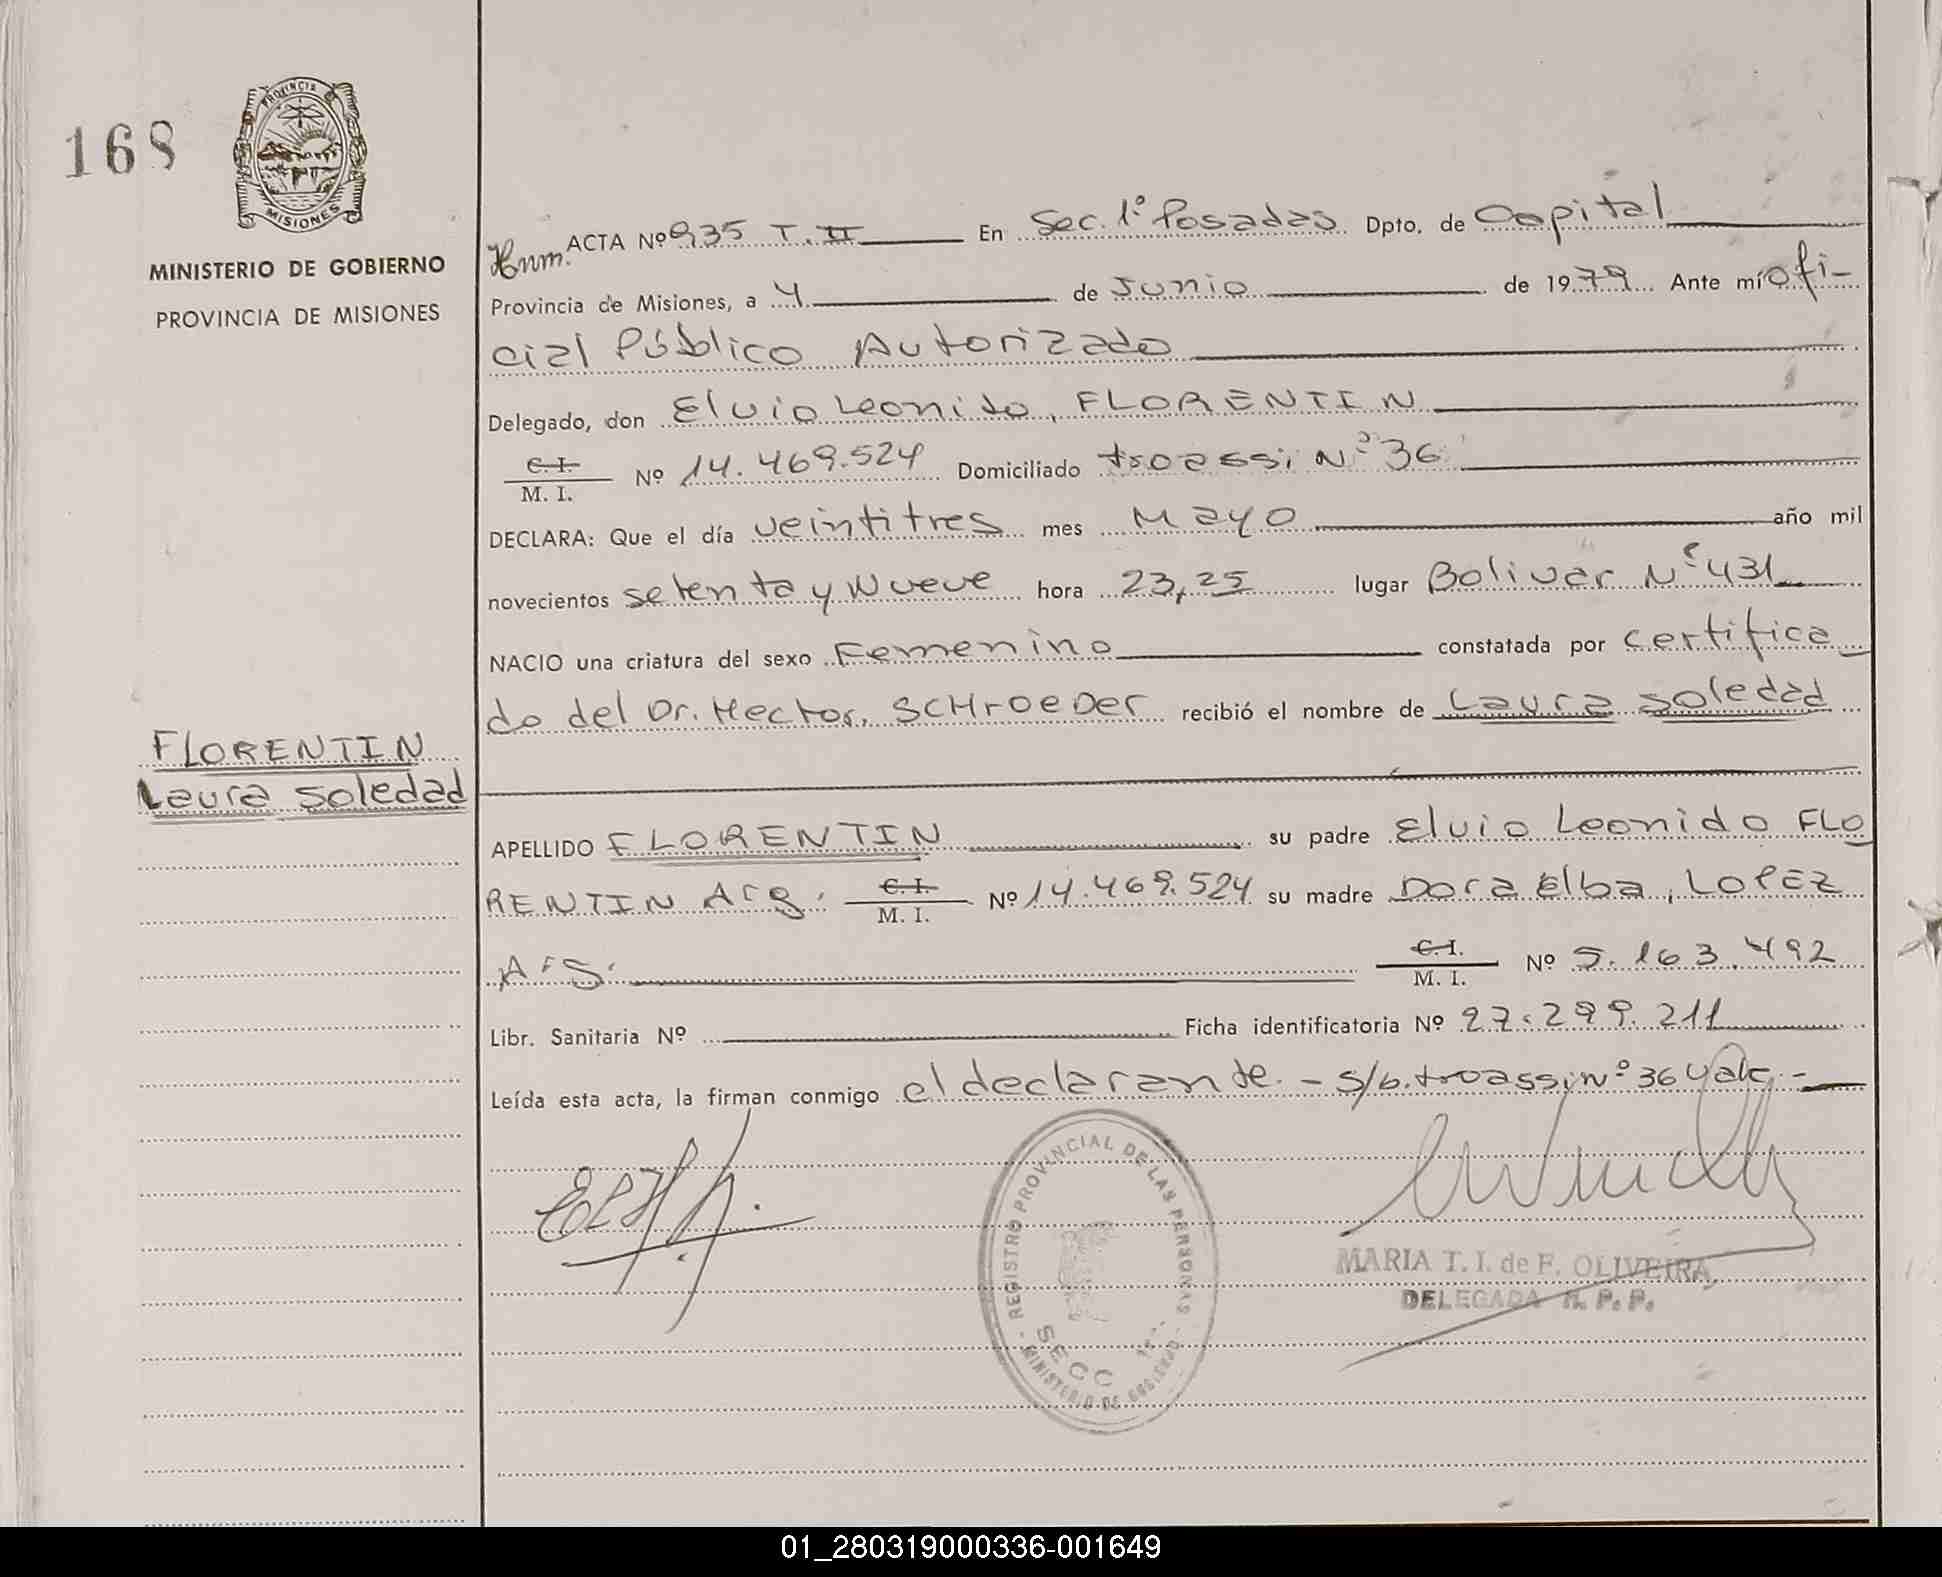 168
PROVINCIA
MISIONES
MINISTERIO DE GOBIERNO
PROVINCIA DE MISIONES
ACTA Nº 935 T. II En Sec. 1º Posadas Dpto. de Capital
Provincia de Misiones, a 4 de Junio de 1979 Ante mí Ofi-
cial Público Autorizado
Delegado, don Elvio Leonido, FLORENTIN
C. I.
M. I. Nº 14.469.524 Domiciliado troassi Nº 36
DECLARA: Que el día veintitres mes Mayo año mil
novecientos setenta y Nueve hora 23,25 lugar Bolivar Nº 431
NACIO una criatura del sexo Femenino constatada por certifica
do del Dr. Hector, SCHroeDer recibió el nombre de Laura Soledad
FLORENTIN
Laura Soledad
APELLIDO FLORENTIN su padre Elvio Leonido FLO
RENTIN Arg. C. I.
M. I. Nº 14.469.524 su madre Dora Elba, LOPEZ
C. I.
M. I. Nº 5.163.492
Libr. Sanitaria Nº Ficha identificatoria Nº 27.299.211
Leída esta acta, la firman conmigo el declarante. - S/b. troassi nº 36 Vale. -
REGISTRO PROVINCIAL DE LAS PERSONAS
SECC 1ª
MINISTERIO DE GOBIERNO
MARIA T. I. de F. OLIVEIRA
DELEGADA R. P. P.
01_280319000336-001649